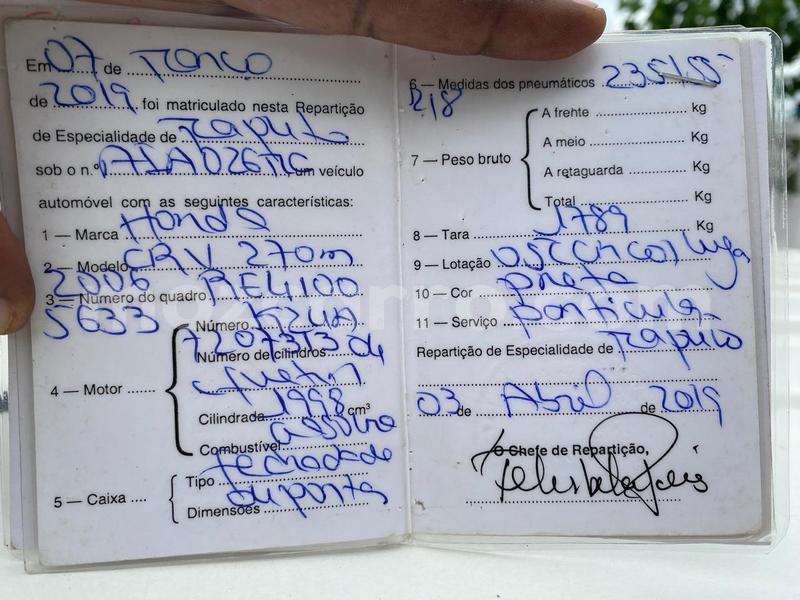 Em 07 de Março
de 2019 foi matriculado nesta Repartição
de Especialidade de Maputo
sob o n.º AIA026MC um veículo
automóvel com as seguintes características:
1 — Marca Honda
2 — Modelo CRV 270m
2006
3 — Número do quadro RE4100
5633
4 — Motor
Número K24A
7207373 de
Número de cilindros
Cilindrada 1998 cm³
Combustível gasolina
5 — Caixa
Tipo fechada de
Dimensões
6 — Medidas dos pneumáticos 235/55
R18
7 — Peso bruto
A frente Kg
A meio Kg
A retaguarda Kg
Total Kg
8 — Tara 1789 Kg
9 — Lotação 05 (cinco) lugar
10 — Cor preta
11 — Serviço particular
Repartição de Especialidade de Maputo
03 de Abril de 2019
O Chefe de Repartição,